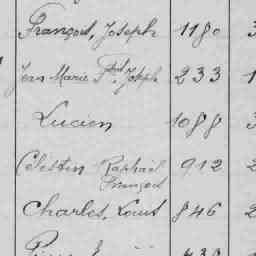 François, Joseph 1180 3
Jean Marie Joseph 233 1
Lucien 1088 3
Célestin Raphaël 912 2
François
Charles, Louis 846 2
438